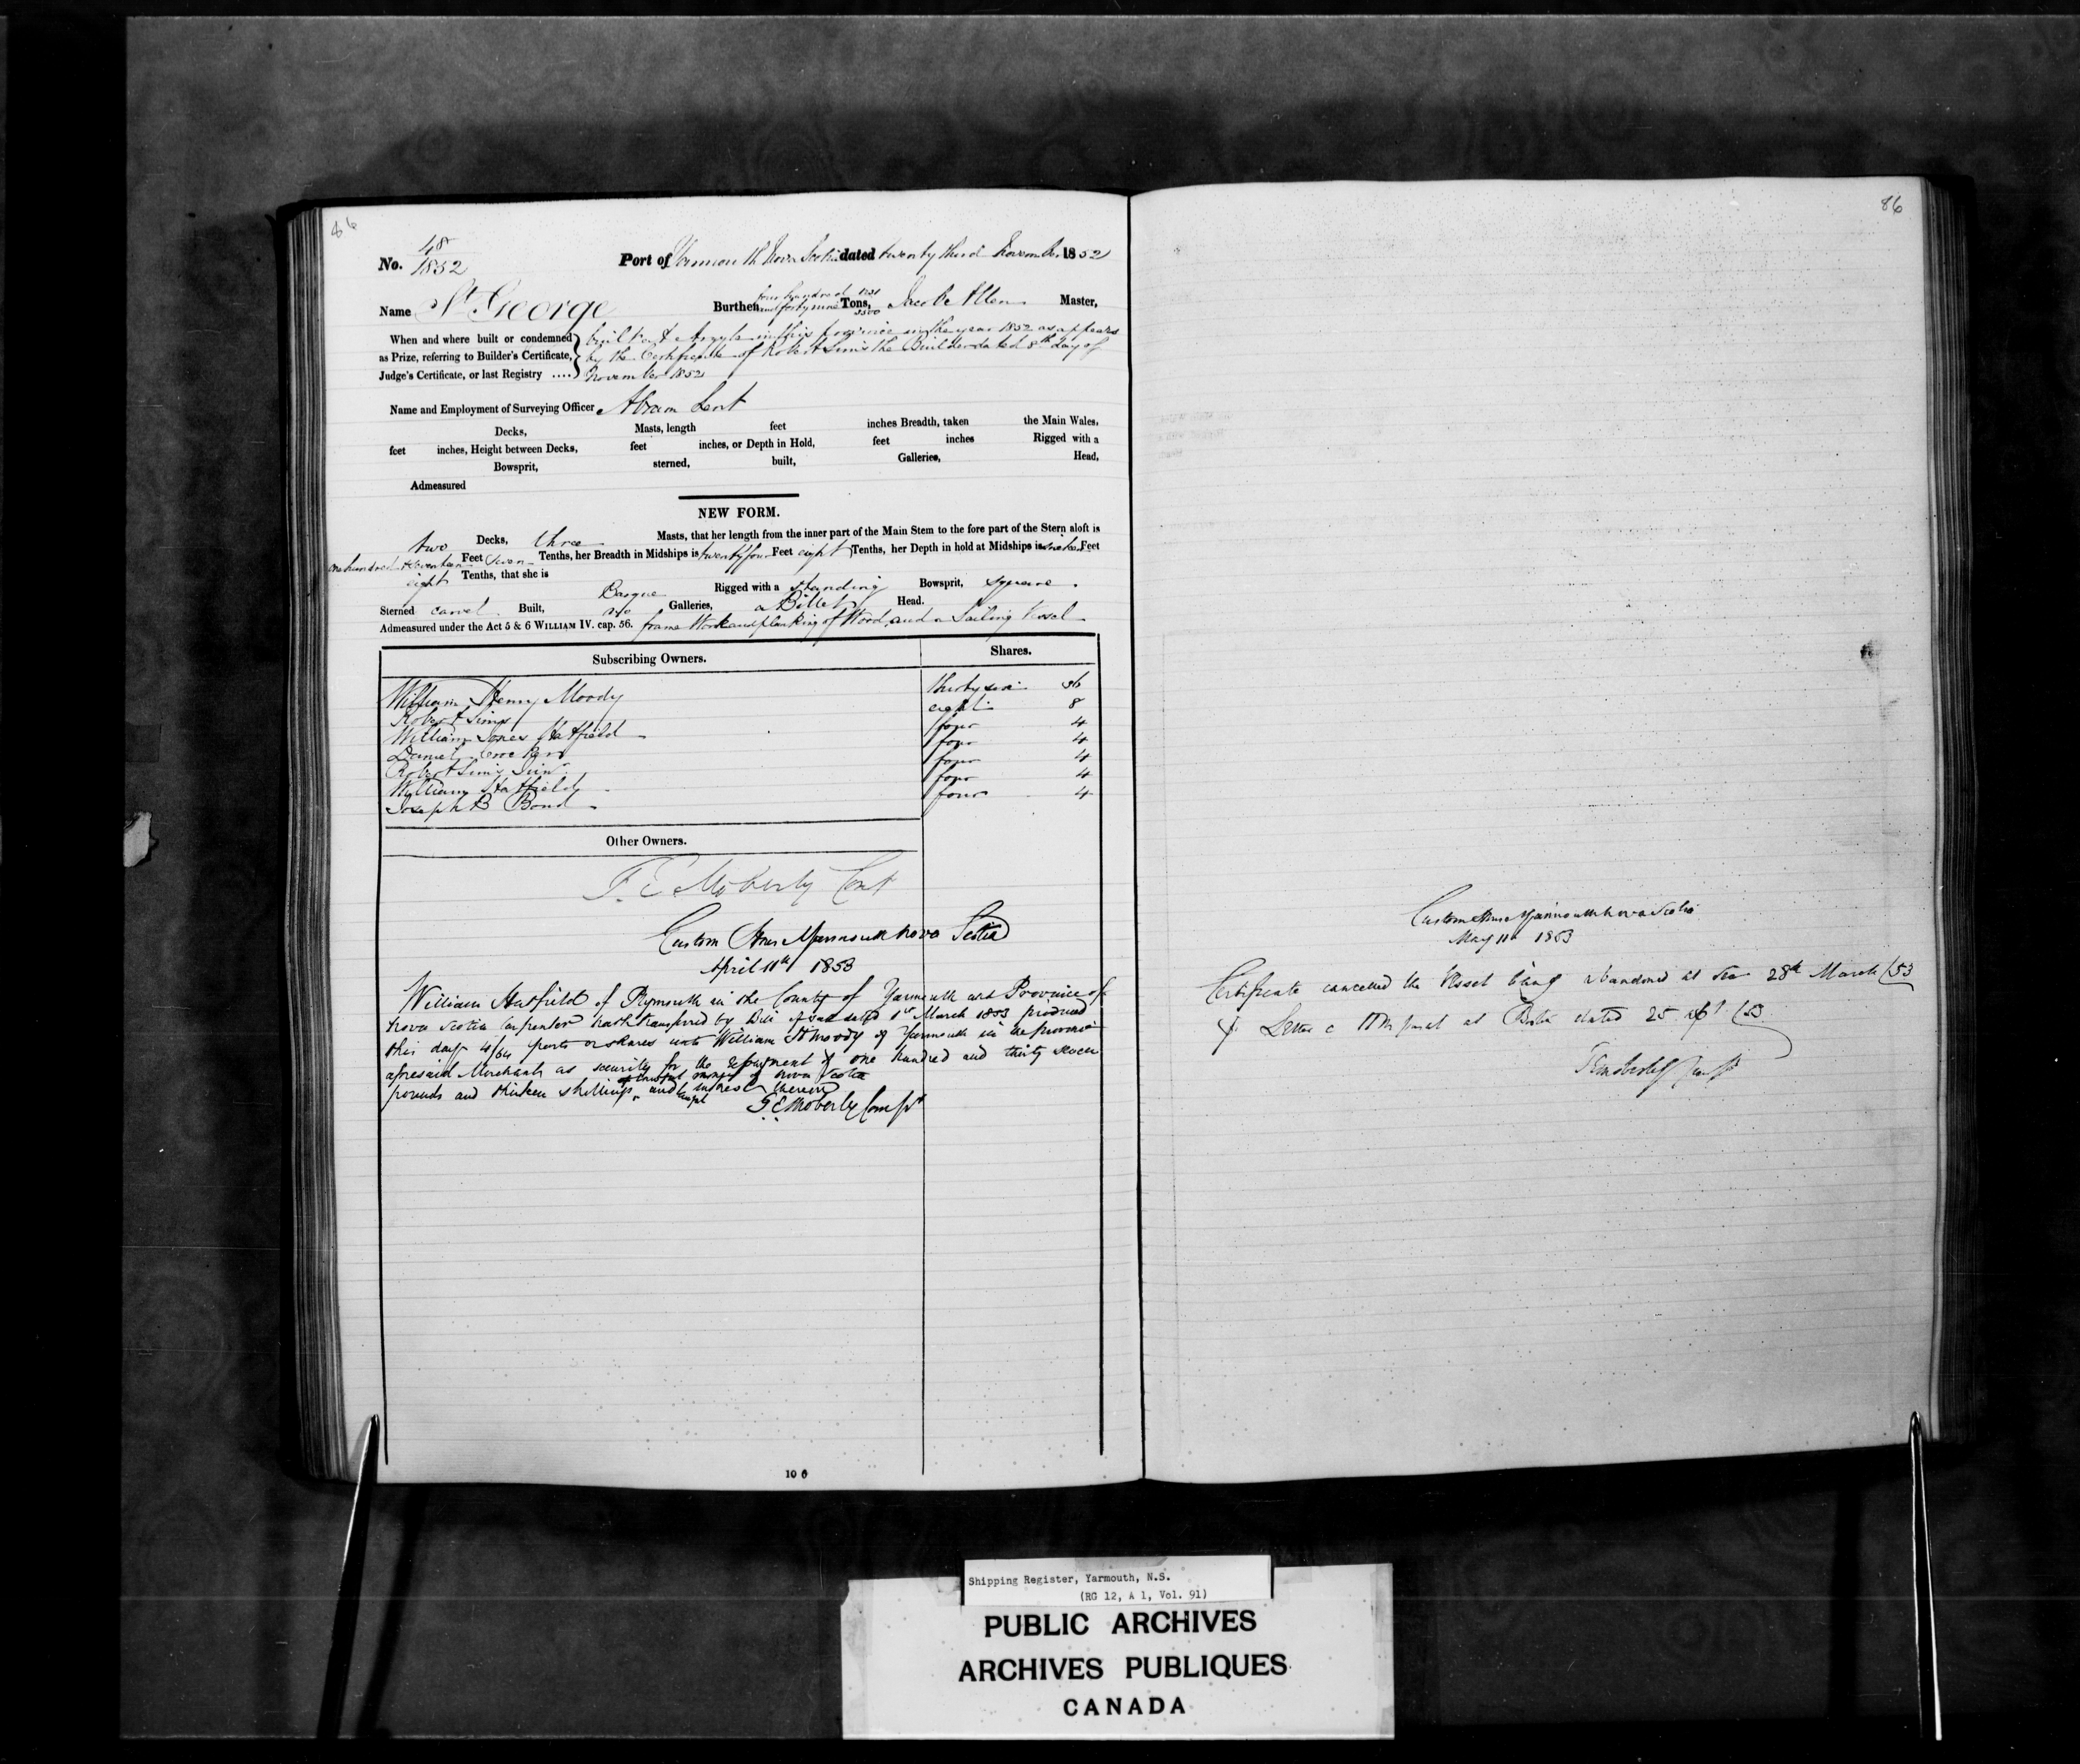 86
No. 48/1852 Port of Yarmouth Nova Scotia dated twenty third November 1852
Name St George Burthen four hundred and forty nine Tons, Jacob Allen Master,
When and where built or condemned
as Prize, referring to Builder's Certificate,
Judge's Certificate, or last Registry ....
built at Argyle in this province in the year 1852 as appears
by the Certificate of Robert Sims the Builder dated 8th day of
November 1852
Name and Employment of Surveying Officer Abram Lent
Decks, Masts, length feet inches Breadth, taken the Main Wales,
feet inches, Height between Decks, feet inches, or Depth in Hold, feet inches Rigged with a
Bowsprit, sterned, built, Galleries, Head,
Admeasured
NEW FORM.
two Decks, three Masts, that her length from the inner part of the Main Stem to the fore part of the Stern aloft is
one hundred & seventeen Feet seven Tenths, her Breadth in Midships is twenty four Feet eight Tenths, her Depth in hold at Midships is Feet
eight Tenths, that she is Barque Rigged with a standing Bowsprit, square
Sterned carvel Built, no Galleries, a Billet Head.
Admeasured under the Act 5 & 6 WILLIAM IV. cap. 56. frame Work and planking of Wood, and a Sailing Vessel
Subscribing Owners. Shares.
William Henry Moody thirty six 36
Robert Sims eight 8
William Jones Hatfield four 4
Daniel four 4
Robert Sims Junr four 4
William Hatfield four 4
Joseph B Bond four 4
Other Owners.
F. E. Moberly Cont
Custom House Yarmouth Nova Scotia
April 11th 1853
William Hatfield of Plymouth in the County of Yarmouth and Province of
Nova Scotia Carpenter hath transferred by Bill of Sale dated 1st March 1853 produced
this day 4/64 parts or shares unto William H Moody of Yarmouth in the province
aforesaid Merchant as security for the repayment of one hundred and thirty seven
of lawful money of Nova Scotia
pounds and thirteen shillings and interest thereon
F E Moberly Compt
10 6
86
Custom House Yarmouth Nova Scotia
May 11th 1853
Certificate cancelled the Vessel being abandoned at Sea 28th March /53
Letter dated 25 /53
F E Moberly Compt
Shipping Register, Yarmouth, N.S.
(RG 12, A 1, Vol. 91)
PUBLIC ARCHIVES
ARCHIVES PUBLIQUES
CANADA